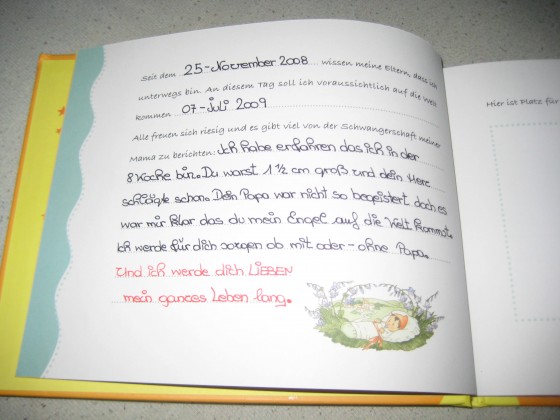 Seit dem 25-November 2008 wissen meine Eltern, dass ich
unterwegs bin. An diesem Tag soll ich voraussichtlich auf die Welt
kommen 07-Juli 2009
Alle freuen sich riesig und es gibt viel von der Schwangerschaft meiner
Mama zu berichten: Ich habe erfahren das ich in der
8 Woche bin. Du warst 1 1/2 cm groß und dein Herz
schlägte schon. Dein Papa war nicht so begeistert doch es
war mir klar das du mein Engel auf die Welt kommst.
Ich werde für dich sorgen ob mit oder-ohne Papa.
Und ich werde dich LIEBEN
mein ganzes Leben lang.
Hier ist Platz für